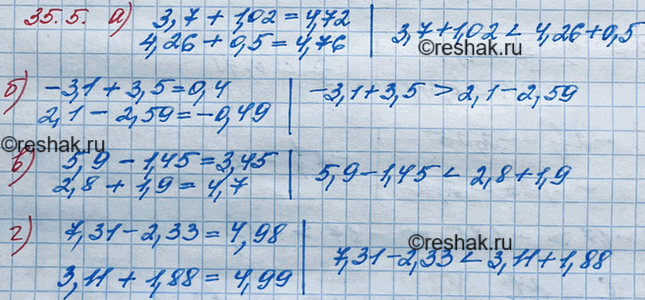 35.5. а) 3,7 + 1,02 = 4,72
4,26 + 0,5 = 4,76
3,7 + 1,02 < 4,26 + 0,5
б) -3,1 + 3,5 = 0,4
2,1 - 2,59 = -0,49
-3,1 + 3,5 > 2,1 - 2,59
©reshak.ru
©reshak.ru
в) 5,9 - 1,45 = 3,45
2,8 + 1,9 = 4,7
5,9 - 1,45 < 2,8 + 1,9
г) 7,31 - 2,33 = 4,98
3,11 + 1,88 = 4,99
7,31 - 2,33 < 3,11 + 1,88
©reshak.ru
©reshak.ru